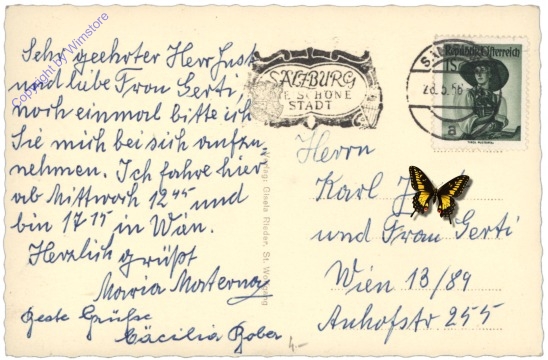 Copyright by Wimstore
Sehr geehrter Herr Just
und liebe Frau Gerti,
noch einmal bitte ich
Sie mich bei sich aufzu-
nehmen. Ich fahre hier
ab Mittwoch 12 45 und
bin 17 15 in Wien.
Herzlich grüßt
Maria Materna
Beste Grüße
Cäcilia Bober
SALZBURG
DIE SCHÖNE
STADT
Republik Österreich
1S
28.5.56
a
Verlag: Gisela Rieder, St. Wolfgang
Herrn
Karl J
und Frau Gerti
Wien 13/89
Anhofstr 255
4.-